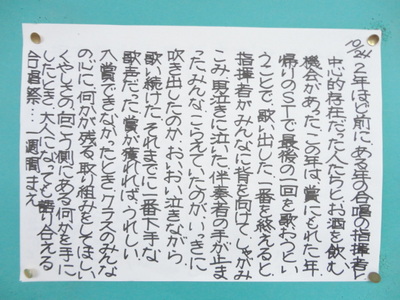 10/24
2年ほど前に、ある年の合唱の指揮者と
中心的存在だった人たちとお酒を飲む
機会があった。この年は、賞にもれた年。
帰りのSTで最後の一回を歌おうとい
うことで、歌い出した。一番を終えると、
指揮者がみんなに背を向けて、しゃがみ
こみ、男泣きに泣いた。伴奏者の手が止ま
った。みんな、こらえていたのがいっきに
吹き出したのか、おいおい泣きながら
歌い続けた。それまでに一番下手な
歌声だった。賞が獲れれば、うれしい。
入賞できなかったとき、クラスのみんな
の心に、何かが残る取り組みをしてほしい。
くやしさの向こう側にある何かを手に
したとき、大人になっても語り合える
合唱祭…一週間まえ